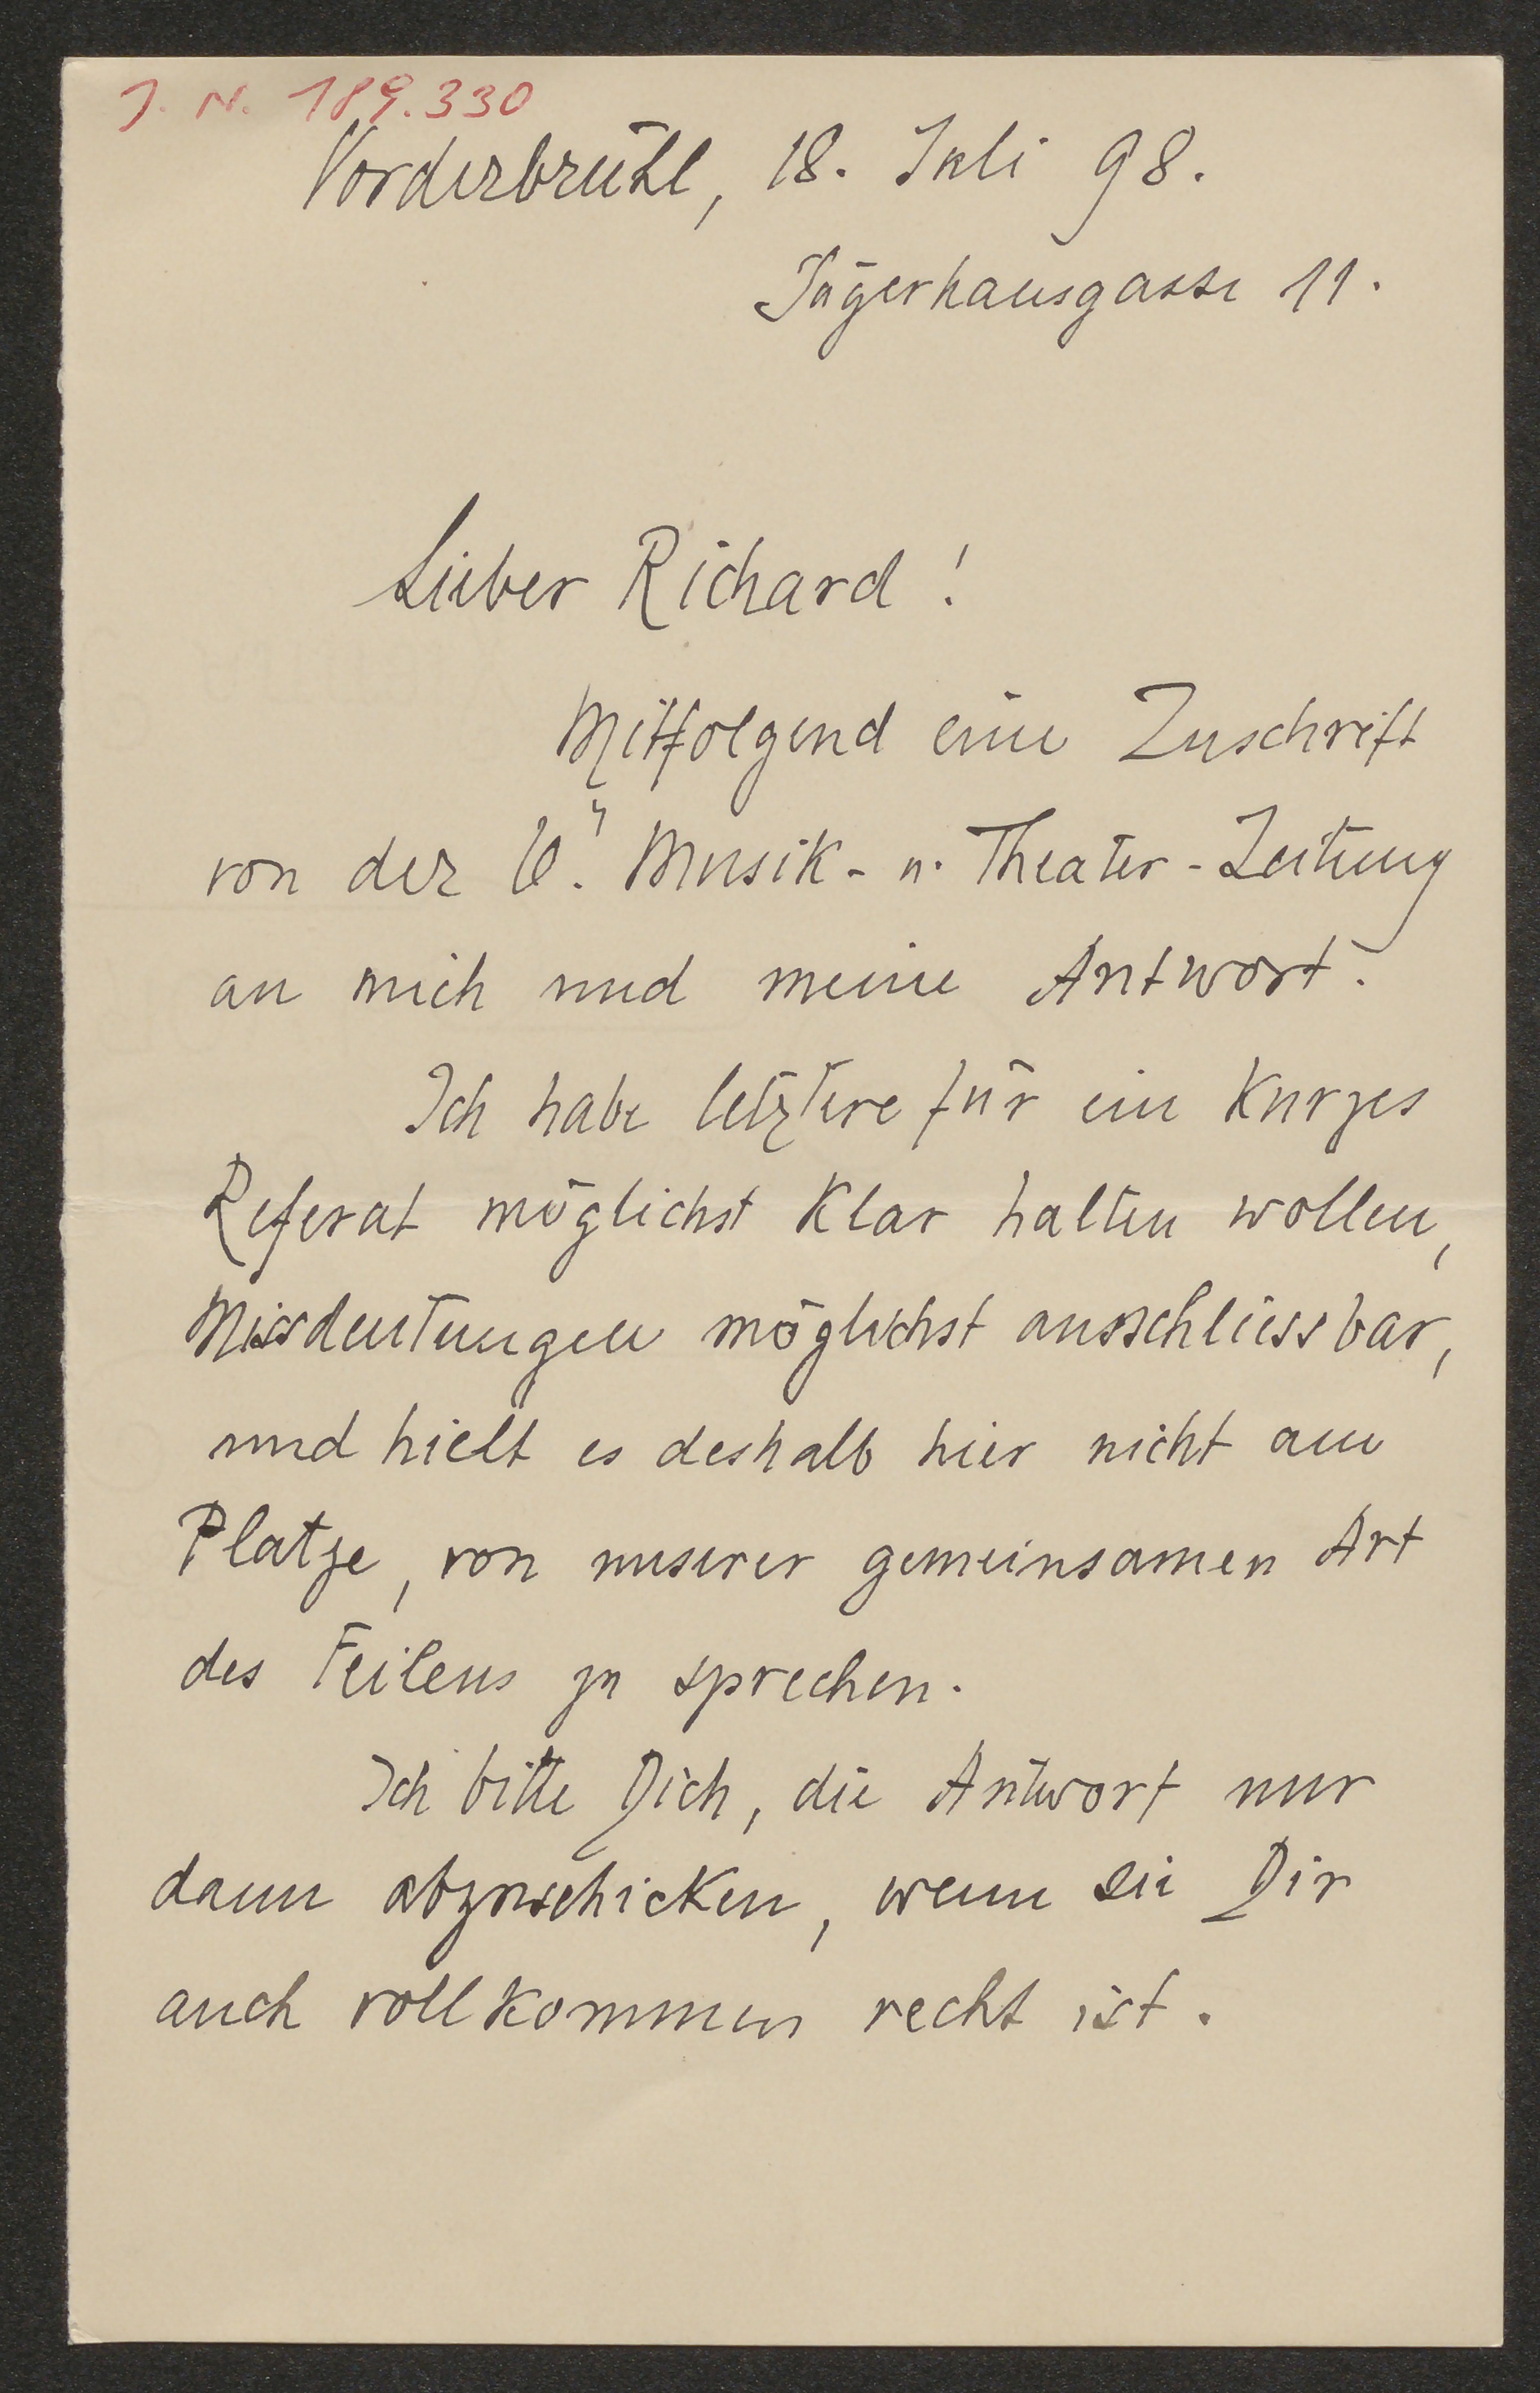 J. N. 189.330
Vorderbrühl, 18. Juli 98.
Jägerhausgasse 11.
Lieber Richard!
Mitfolgend eine Zuschrift
von der W. Musik- u. Theater-Zeitung
an mich und meine Antwort.
Ich habe letztere für ein kurzes
Referat möglichst klar halten wollen,
Missdeutungen möglichst ausschliessbar,
und hielt es deshalb hier nicht am
Platze, von unserer gemeinsamen Art
des Feilens zu sprechen.
Ich bitte Dich, die Antwort nur
dann abzuschicken, wenn sie Dir
auch vollkommen recht ist.